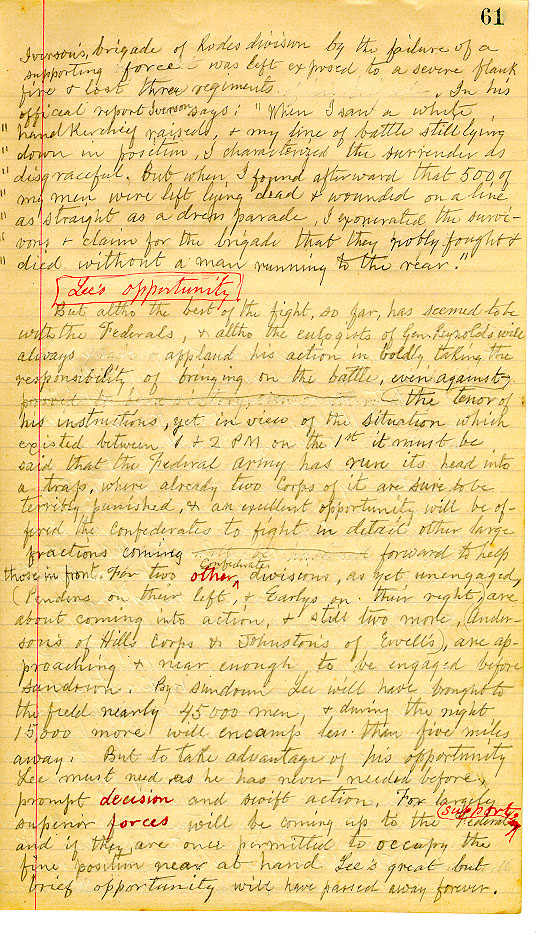 61
Iverson's, brigade of Rodes division by the failure of a
supporting force was left exposed to a severe flank
fire & lost three regiments. In his
official report Iverson says: "When I saw a white
" handkerchief raised, & my line of battle still lying
" down in position, I characterized the surrender as
" disgraceful. But when I found afterward that 500 of
" my men were left lying dead & wounded on a line
" as straight as a dress parade, I exonerated the survi-
" vors & claim for the brigade that they nobly fought &
" died without a man running to the rear."
Lee's opportunity
But altho the best of the fight, so far, has seemed to be
with the Federals, & altho the eulogists of Gen Reynolds will
always applaud his action in boldly taking the
responsibility of bringing on the battle, even against
the tenor of
his instructions, yet in view of the situation which
existed between 1 & 2 PM on the 1st it must be
said that the Federal army has run its head into
a trap, where already two Corps of it are sure to be
terribly punished, & an excellent opportunity will be of-
fered the Confederates to fight in detail other large
fractions coming forward to help
those in front. For two other Confederate divisions, as yet unengaged,
(Penders on their left, & Earlys on their right) are
about coming into action, & still two more, (Ander-
son's of Hills Corps & Johnston's of Ewells), are ap-
proaching & near enough to be engaged before
sundown. By sundown Lee will have brought to
the field nearly 45000 men, & during the night
15,000 more will encamp less than five miles
away. But to take advantage of his opportunity
Lee must need, as he has never needed before,
prompt decision and swift action. For largely
superior forces will be coming up to the Federal support,
and if they are once permitted to occupy the
fine position near at hand Lee's great but
brief opportunity will have passed away forever.